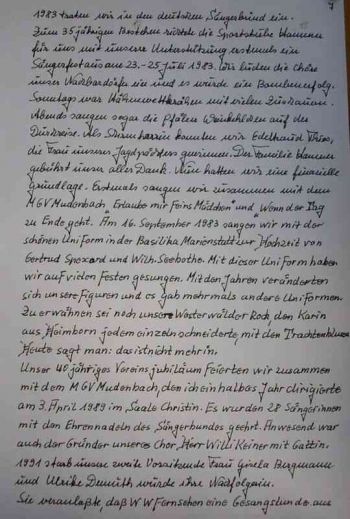 1983 traten wir in den deutschen Sängerbund ein.
Zum 35 jährigen Bestehen rüstete die Sportstube Klammer
für uns mit unserer Unterstützung erstmals ein
Sängerfest aus am 23.-25 Juli 1983. Wir luden die Chöre
unser Nachbardörfer ein und es wurde ein Bombenerfolg.
Sonntags war mit vielen Zuschauern.
Abends sangen sogar die auf der
Als konnten wir Edeltraud
die Frau unseres gewinnen. Der Familie Klammer
gebührt unser aller Dank. Nun hatten wir eine finanzielle
Grundlage. Erstmals sangen wir zusammen mit dem
MGV Mudenbach, "Erlaube mir Feins Mädchen" und "Wenn der Tag
zu Ende geht." Am 16. September 1983 sangen wir mit der
schönen Uniform in der Basilika Marienstatt zur Hochzeit von
Gertrud und Wilh. Seebothe. Mit dieser Uniform haben
wir auf vielen Festen gesungen. Mit den Jahren veränderten
sich unsere Figuren und es gab mehrmals andere Uniformen.
Zu erwähnen sei noch unsere Westerwälder Rock, den Karin
aus Heimborn jedem einzeln schneiderte mit den Trachtenbluse
Heute sagt man: das ist nicht mehr in.
Unser 40 jähriges Vereinsjubiläum feierten wir zusammen
mit dem MGV Mudenbach, den ich ein halbes Jahr dirigierte
am 3. April 1989 im Saale Christin. Es wurden 28 Sängerinnen
mit den Ehrennadeln des Sängerbundes geehrt. Anwesend war
auch der Gründer unseres Chor, Herr Willi Keiner mit Gattin.
1991 starb unsere zweite Vorsitzende Frau Gisela Bergmann
und Ulrike Demuth wurde ihre Nachfolgerin.
Sie veranlaßte, daß WW Fernsehen eine Gesangstunde aus